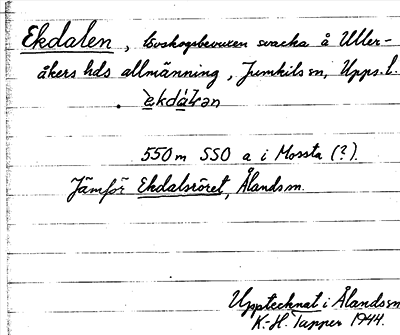 Ekdalen, lövskogsbevuxen svacka å Uller-
åkers hds allmänning, Jumkils sn, Upps. l.
ekdálen
550 m SSO a i Mossta (?).
Jämför Ekdalsröret, Ålands sn.
Upptecknat i Ålands sn
K.-H. Tapper 1944.